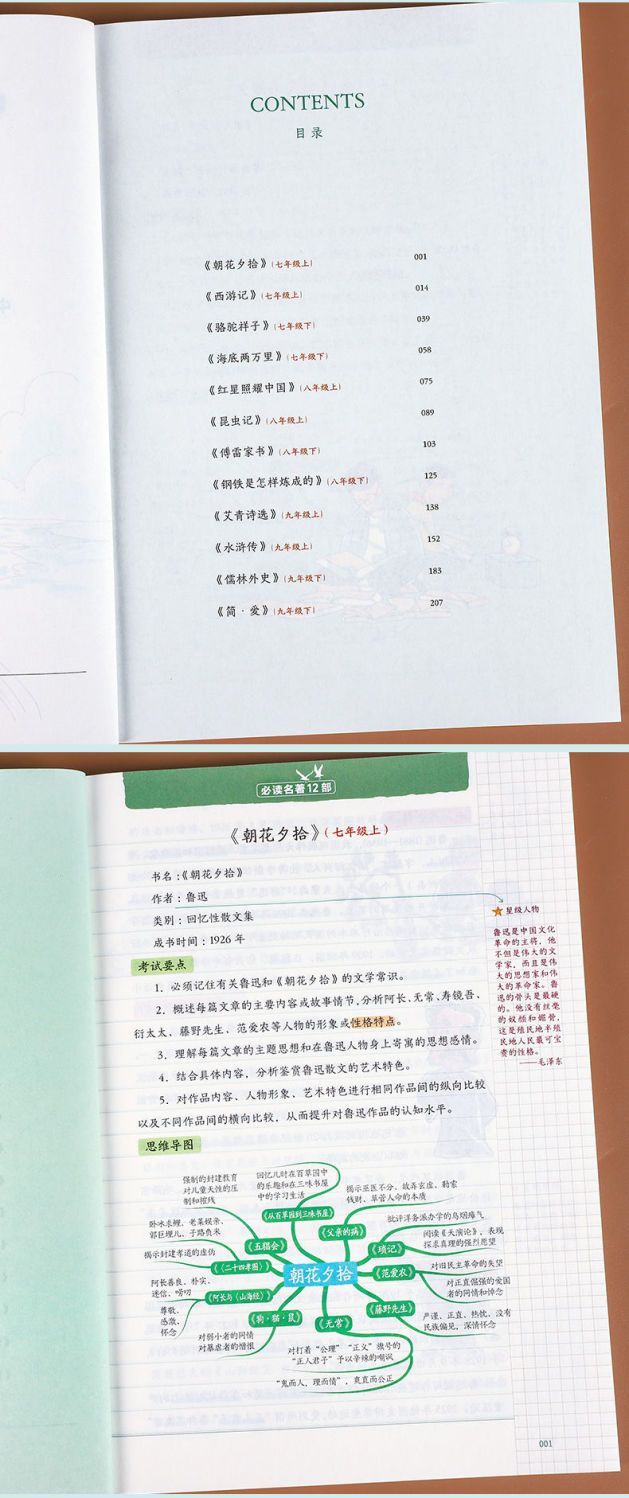 CONTENTS
目录
《朝花夕拾》(七年级上) 001
《西游记》(七年级上) 014
《骆驼祥子》(七年级下) 039
《海底两万里》(七年级下) 058
《红星照耀中国》(八年级上) 075
《昆虫记》(八年级上) 089
《傅雷家书》(八年级下) 103
《钢铁是怎样炼成的》(八年级下) 125
《艾青诗选》(九年级上) 138
《水浒传》(九年级上) 152
《儒林外史》(九年级下) 183
《简·爱》(九年级下) 207
必读名著12部
《朝花夕拾》(七年级上)
书名:《朝花夕拾》
作者:鲁迅
类别:回忆性散文集
成书时间:1926年
星级人物
鲁迅是中国文化
革命的主将,他
不但是伟大的文
学家,而且是伟
大的思想家和伟
大的革命家。鲁
迅的骨头是最硬
的,他没有丝毫
的奴颜和媚骨,
这是殖民地半殖
民地人民最可宝
贵的性格。
——毛泽东
考试要点
1. 必须记住有关鲁迅和《朝花夕拾》的文学常识。
2. 概述每篇文章的主要内容或故事情节,分析阿长、无常、寿镜吾、
衍太太、藤野先生、范爱农等人物的形象或性格特点。
3. 理解每篇文章的主题思想和在鲁迅人物身上寄寓的思想感情。
4. 结合具体内容,分析鉴赏鲁迅散文的艺术特色。
5. 对作品内容、人物形象、艺术特色进行相同作品间的纵向比较
以及不同作品间的横向比较,从而提升对鲁迅作品的认知水平。
思维导图
强制的封建教育
对儿童天性的压
制和摧残
回忆儿时在百草园中
的乐趣和在三味书屋
中的学习生活
揭示巫医不分、故弄玄虚、勒索
钱财、草菅人命的本质
《从百草园到三味书屋》
《父亲的病》
批评洋务派办学的乌烟瘴气
卧冰求鲤、老莱娱亲、
郭巨埋儿、子路负米
《五猖会》
《琐记》
阅读《天演论》,表现
探求真理的强烈愿望
揭示封建孝道的虚伪
《二十四孝图》
朝花夕拾
《范爱农》
对旧民主革命的失望
对正直倔强的爱国
者的同情和悼念
阿长善良、朴实、
迷信、唠叨
《阿长与〈山海经〉》
尊敬、
感激、
怀念
《狗·猫·鼠》
《无常》
《藤野先生》
严谨、正直、热忱、没有
民族偏见,深情怀念
对弱小者的同情
对暴虐者的憎恨
对打着“公理”“正义”旗号的
“正人君子”予以辛辣的嘲讽
“鬼而人,理而情”,爽直而公正
001